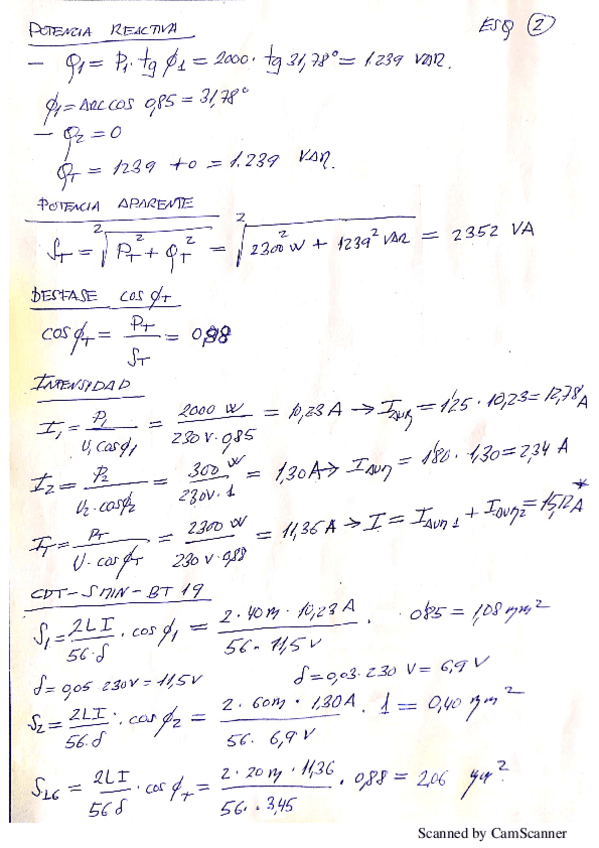 POTENCIA REACTIVA
ESQ 2
- Q1 = P1 · tg ϕ1 = 2000 · tg 31,78° = 1.239 VAR.
ϕ1 = ARCCOS 0,85 = 31,78°
- Q2 = 0
QT = 1239 + 0 = 1.239 VAR.
POTENCIA APARENTE
ST = ²√(PT² + QT²) = ²√(2300² W + 1239² VAR) = 2352 VA
DESFASE cos ϕT
cos ϕT = PT / ST = 0,98
INTENSIDAD
I1 = P1 / U1 cosϕ1 = 2000 W / 230 V · 0,85 = 10,23 A → I = 1'25 · 10,23 = 12,78 A
I2 = P2 / U2 · cosϕ2 = 300 W / 230V · 1 = 1,30 A → I = 1'80 · 1,30 = 2,34 A
IT = PT / U · cos ϕT = 2300 W / 230 V · 0,88 = 11,36 A → I = I 1 + I 2 = 15,12 A *
CDT - SMIN - BT 19
S1 = 2LI / 56·δ · cos ϕ1 = 2 · 40m · 10,23 A / 56 · 11,5 V · 0'85 = 1,08 mm²
δ = 0,05 · 230V = 11,5V δ = 0,03 · 230 V = 6,9 V
S2 = 2LI / 56·δ · cos ϕ2 = 2 · 60m · 1,30A / 56 · 6,9 V · 1 = 0,40 mm²
SLG = 2LI / 56δ · cos ϕT = 2 · 20m · 11,36 / 56 · 3,45 · 0,88 = 2,06 mm²
Scanned by CamScanner